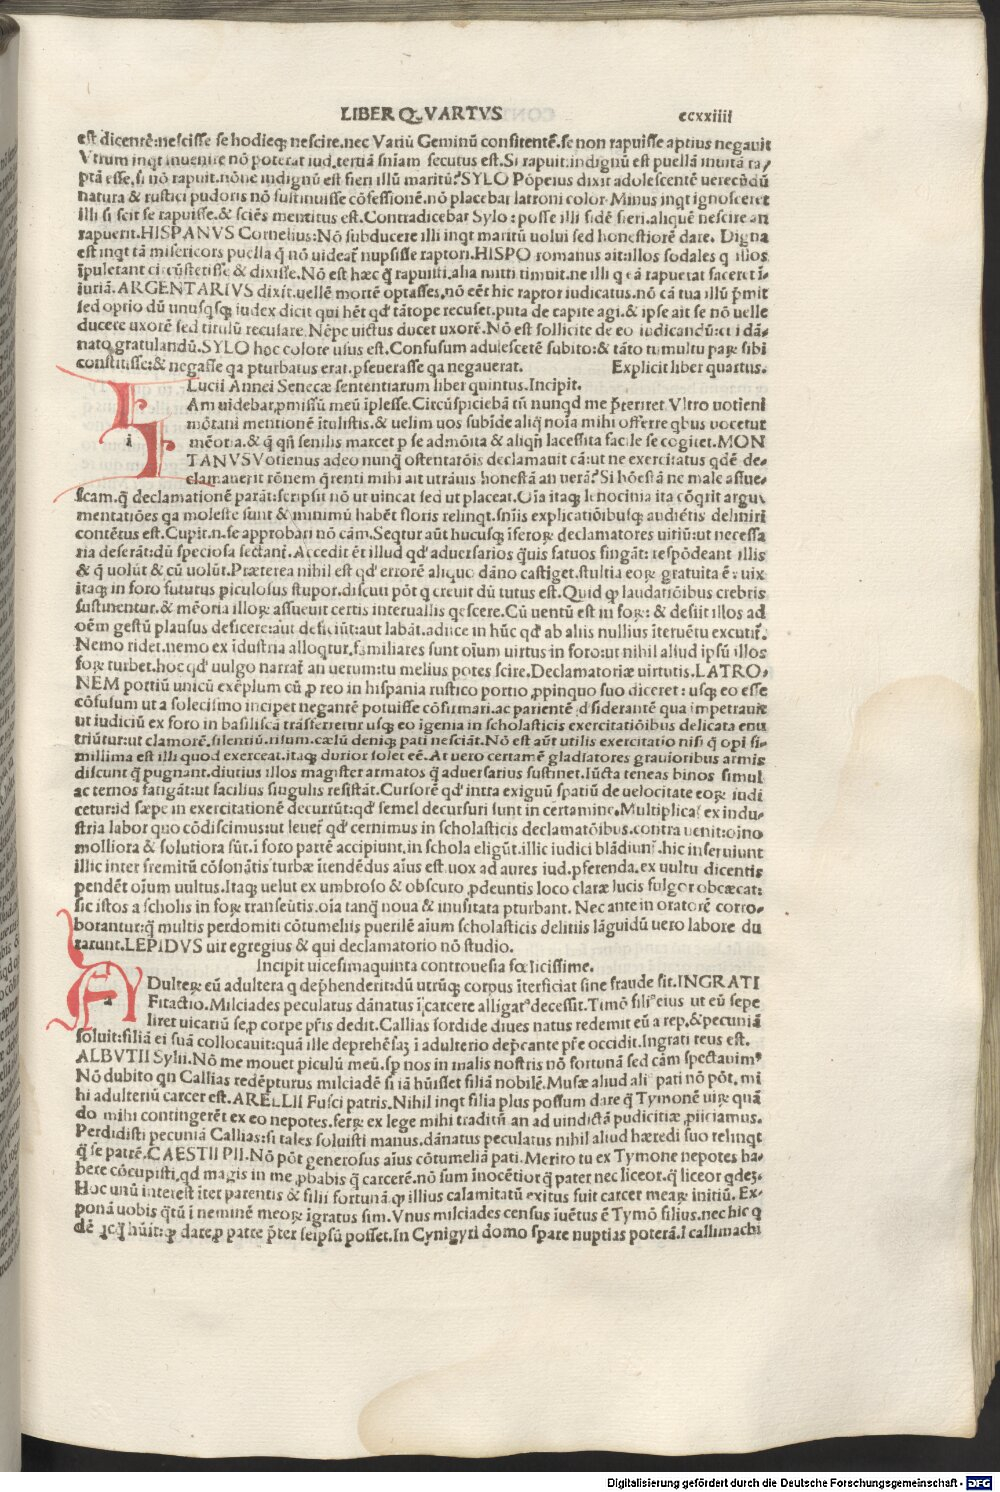 LIBER Q VARTVS ccxxiiii
est dicentē:nescisse se hodieq; nescire.nec Variū Geminū confitentē.se non rapuisse aptius negauit
Vtrum inqt inuenire nō poterat iud.tertiā sniam secutus est.Si rapuit:indignū est puellā inuitā ra/
ptā esse.si nō rapuit.nōne indignū est fieri illū maritū?SYLO Pōpeius dixit adolescentē uerecūdū
natura & rustici pudoris nō sustinuisse cōfessionē.nō placebat latroni color Minus inqt ignosceret
illi si scit se rapuisse.& sciēs mentitus est.Contradicebat Sylo:posse illi fidē fieri.aliquē nescire an
rapuerit.HISPANVS Cornelius:Nō subducere illi inqt maritū uolui sed honestiorē dare. Digna
est inqt tā misericors puella q̄ nō uideat nupsisse raptori.HISPO romanus ait:illos sodales q illos
īpuletant circūstetisse & dixisse.Nō est hæc q̄ rapuisti.alia mitti timuit.ne illi q eā rapuerat faceret ī-
iuriā.ARGENTARIVS dixit.uellē mortē optasses.nō eēt hic raptor iudicatus.nō cā tua illū p̄mit
sed optio dū unusqsq; iudex dicit qui hēt qd' tātope recuset.puta de capite agi.& ipse ait se nō uelle
ducere uxorē sed titulū recusare.Nēpe uictus ducet uxorē.Nō est sollicite de eo iudicandū:ei dā-
nato gratulandū.SYLO hoc colore usus est.Confusum adulescētē subito:& tāto tumultu paꝝ sibi
constitisse:& negasse qa pturbatus erat.pseuerasse qa negauerat. Explicit liber quartus.
Lucii Annei Senecæ sententiarum liber quintus.Incipit.
i Am uidebar,pmissū meū īplesse.Circūspiciebā tn̄ nunqd me p̄teriret Vltro uotieni
mōtani mentionē ītulistis.& uelim uos subīde aliq̄ noīa mihi offerre qbus uocetur
mēoria.& q̄ qn̄ senilis marcet p se admōita & aliqn̄ lacessita facile se cogitet.MON
TANVS Votienus adeo nunq̄ ostentatōis declamauit cā:ut ne exercitatus qdē de-
clamauerit rōnem q̄renti mihi ait utrāuis honestā an uerā?Si hōestā ne male assue-
scam.q̄ declamationē parāt:scripsit nō ut uincat sed ut placeat.Oīa itaq; lenocinia ita cōqrit argu
mentatiōes qa moleste sunt & minimū habēt floris relinqt.snīis explicatiōibusq; audiētis deliniri
contētus est.Cupit.n.se approbari nō cām.Seqtur aūt hucusq; īseroꝝ declamatores uitiū:ut necessa
ria deserāt:dū speciosa sectant.Accedit ēt illud qd' aduersarios q̄uis fatuos fingāt:respōdeant illis
& q̄ uolūt & cū uolūt.Præterea nihil est qd' errorē aliquo dāno castiget.stultia eoꝝ gratuita ē:uix
itaq; in foro futurus piculosus stupor.discuti pōt q creuit dū tutus est.Quid qp laudatiōibus crebris
sustinentur.& mēoria illoꝝ assueuit certis interuallis qescere.Cū uentū est in foꝝ:& desiit illos ad
oēm gestū plausus deficere:aut deficiūt:aut labāt.adiice in hūc qd' ab aliis nullius īteruētu excutit.
Nemo ridet.nemo ex īdustria alloqtur.familiares sunt oīum uirtus in foro:ut nihil aliud ipsū illos
foꝝ turbet.hoc qd' uulgo narrat an uerum:tu melius potes scire.Declamatoriæ uirtutis.LATRO-
NEM portiū unicū exēplum cū p reo in hispania rustico portio,ppinquo suo diceret:usq; eo esse
cōfusum ut a solecismo incipet negantē potuisse cōfirmari.ac parientē dsiderantē qua impetrauit
ut iudiciū ex foro in basilicā trāsferretur usq; eo īgenia in scholasticis exercitatiōibus delicata enu
triūtur:ut clamorē.silentiū.risum.cælū deniq; pati nesciāt.Nō est aūt utilis exercitatio nisi q̄ opi si-
millima est illi quod exerceat.itaq; durior solet eē.At uero certamē gladiatores grauioribus armis
discunt q̄ pugnant.diutius illos magister armatos q̄ aduersarius sustinet.Iūcta teneas binos simul
ac ternos fatigāt:ut facilius siugulis resistāt.Cursorē qd' intra exiguū spatiū de uelocitate eoꝝ iudi
cetur:id sæpe in exercitationē decurrūt:qd' semel decursuri sunt in certamine.Multiplicat ex indu-
stria labor quo cōdiscimus:ut leuet qd' cernimus in scholasticis declamatōibus.contra uenit:oīno
molliora & solutiora sūt.ī foro partē accipiunt.in schola eligūt.illic iudici blādiunt.hic inseruiunt
illic inter fremitū cōsonātis turbæ ītendēdus aīus est.uox ad aures iud.pferenda.ex uultu dicentis
pendēt oīum uultus.Itaq; uelut ex umbroso & obscuro,pdeuntis loco claræ lucis fulgor obcæcat:
sic istos a scholis in foꝝ transeūtis.oīa tanq̄ noua & inusitata pturbant. Nec ante in oratorē corro-
borantur:q̄ multis perdomiti cōtumeliis puerilē aīum scholasticis delitiis lāguidū uero labore du
rarunt.LEPIDVS uir egregius & qui declamatorio nō studio.
Incipit uicesimaquinta controuesia fœlicissime.
a Dulterꝝ eū adultera q dep̄henderit:dū utrūq; corpus īterficiat sine fraude sit.INGRATI
Fitactio.Milciades peculatus dānatus ī carcere alligat⁹ decessit.Timō fili⁹ eius ut eū sepe
liret uicariū se,p corpe p̄ris dedit.Callias sordide diues natus redemit eū a rep.& pecuniā
soluit:filiā ei suā collocauit:quā ille deprehēsaꝫ ī adulterio dep̄cante pr̄e occidit.Ingrati reus est.
ALBVTII Sylii.Nō me mouet piculū meū.sp nos in malis nostris nō fortunā sed cām spectauim⁹
Nō dubito qn Callias redēpturus milciadē si iā hūisset filiā nobilē.Musæ aliud ali pati nō pōt. mi
hi adulteriū carcer est.ARELLII Fusci patris.Nihil inqt filia plus possum dare q̄ Tymonē uiꝝ quā
do mihi contingerēt ex eo nepotes.ferꝝ ex lege mihi traditū an ad uindictā pudicitiæ,piiciamus.
Perdidisti pecuniā Callias:si tales soluisti manus.dānatus peculatus nihil aliud hæredi suo relinqt
q̄ se patrē.CAESTII PII.Nō pōt generosus aīus cōtumeliā pati.Merito tu ex Tymone nepotes ha-
bere cōcupisti.qd magis in me,pbabis q̄ carcerē.nō sum īnocētior q̄ pater nec liceor.q̄ liceor qdeꝫ.
Hoc unū interest īter parentis & filii fortunā.qp illius calamitatū exitus fuit carcer meaꝝ initiū. Ex-
ponā uobis q̄tū ī neminē meoꝝ īgratus sim.Vnus milciades census iuētus ē Tymō filius.nec hic q
dē qcq̄ hūit:qp daret,p patre p̄ter seipsū posset.In Cynigyri domo spare nuptias poterā.ī callimachi
Digitalisierung gefördert durch die Deutsche Forschungsgemeinschaft - DFG